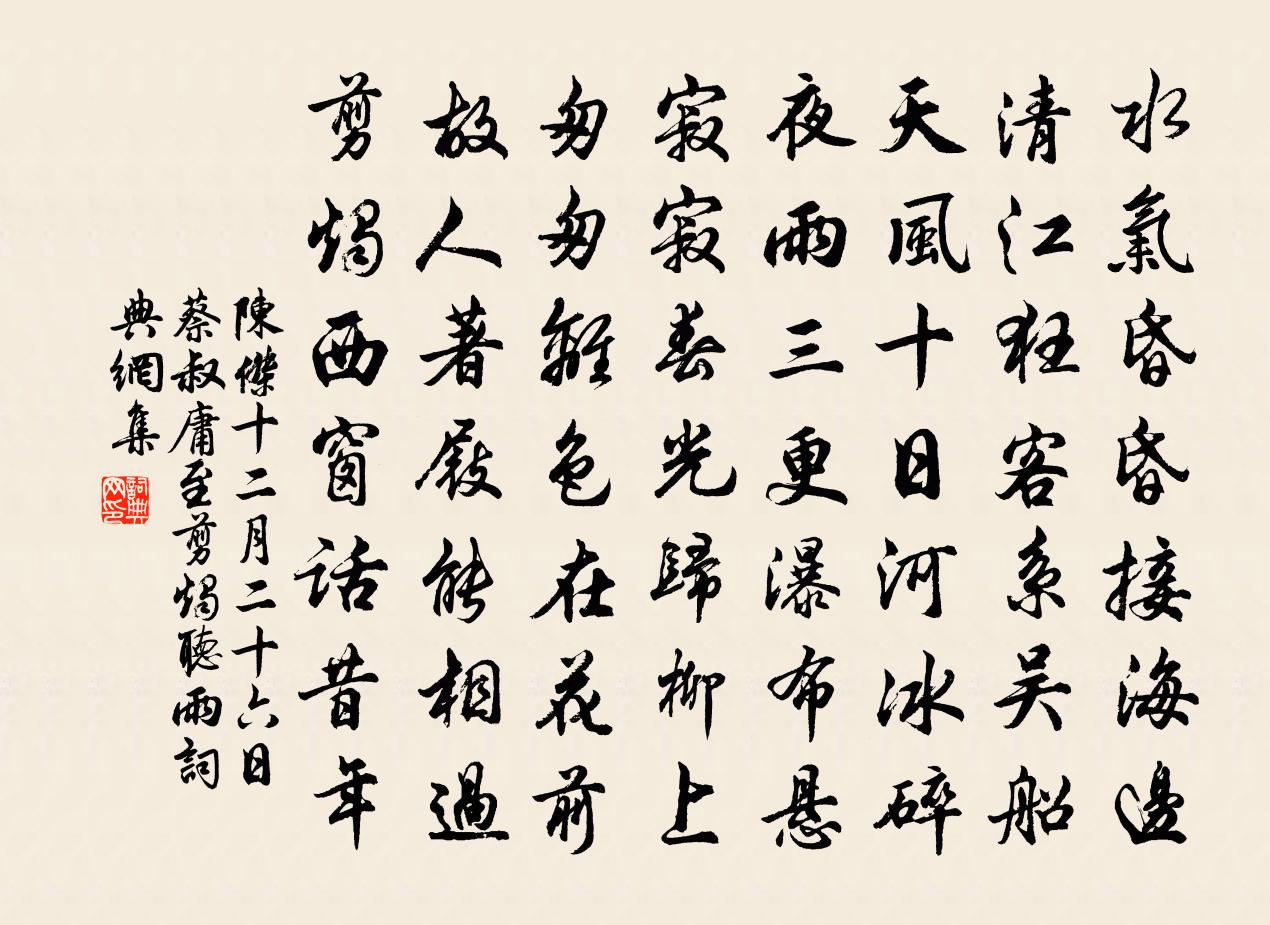 水氣昏昏接海邊
清江狂客系吴船
天風十日河冰碎
夜雨三更瀑布悬
寂寂春光歸柳上
匆匆離色在花前
故人著屐能相過
剪燭西窗話昔年
陳傑十二月二十六日
蔡叔庸至剪燭聽雨詞
典網集
詞典
网印